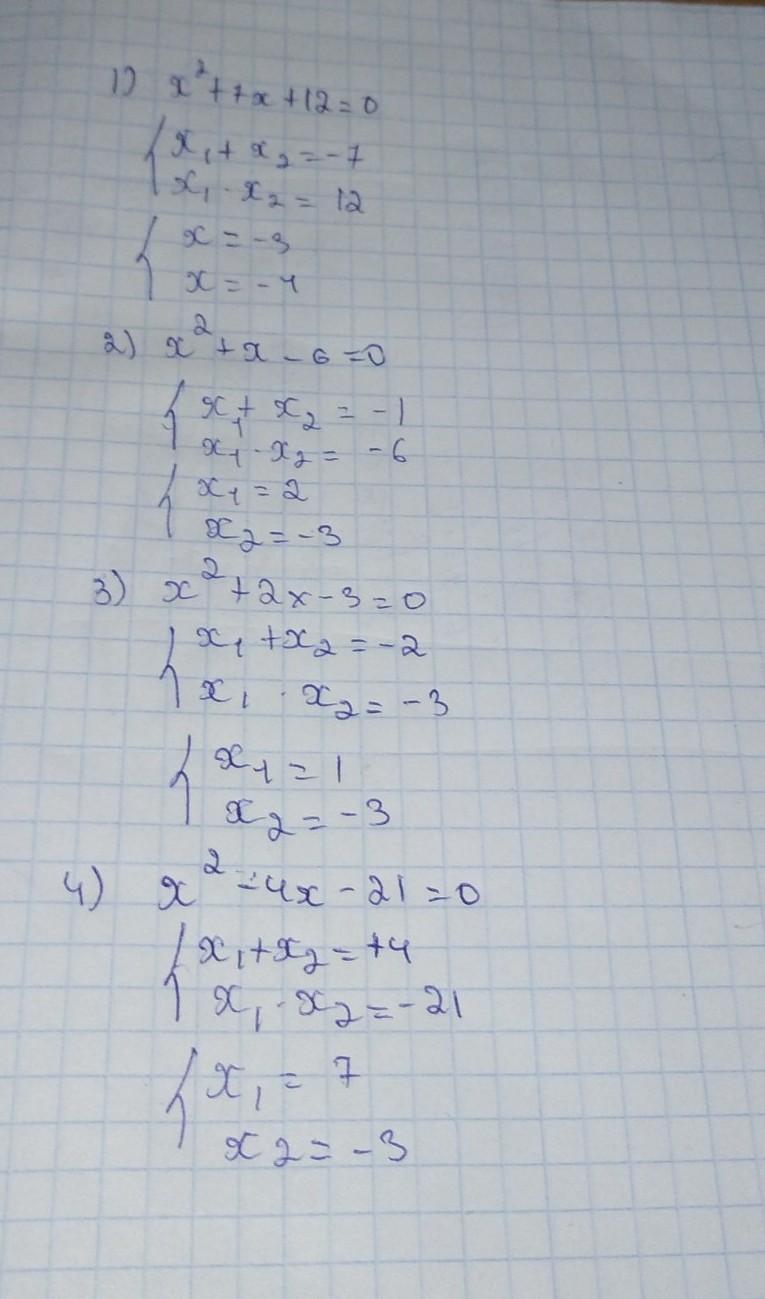 1) x² + 7x + 12 = 0
{ x₁ + x₂ = -7
x₁ · x₂ = 12
{ x = -3
x = -4
2) x² + x - 6 = 0
{ x₁ + x₂ = -1
x₁ · x₂ = -6
{ x₁ = 2
x₂ = -3
3) x² + 2x - 3 = 0
{ x₁ + x₂ = -2
x₁ · x₂ = -3
{ x₁ = 1
x₂ = -3
4) x² - 4x - 21 = 0
{ x₁ + x₂ = +4
x₁ · x₂ = -21
{ x₁ = 7
x₂ = -3